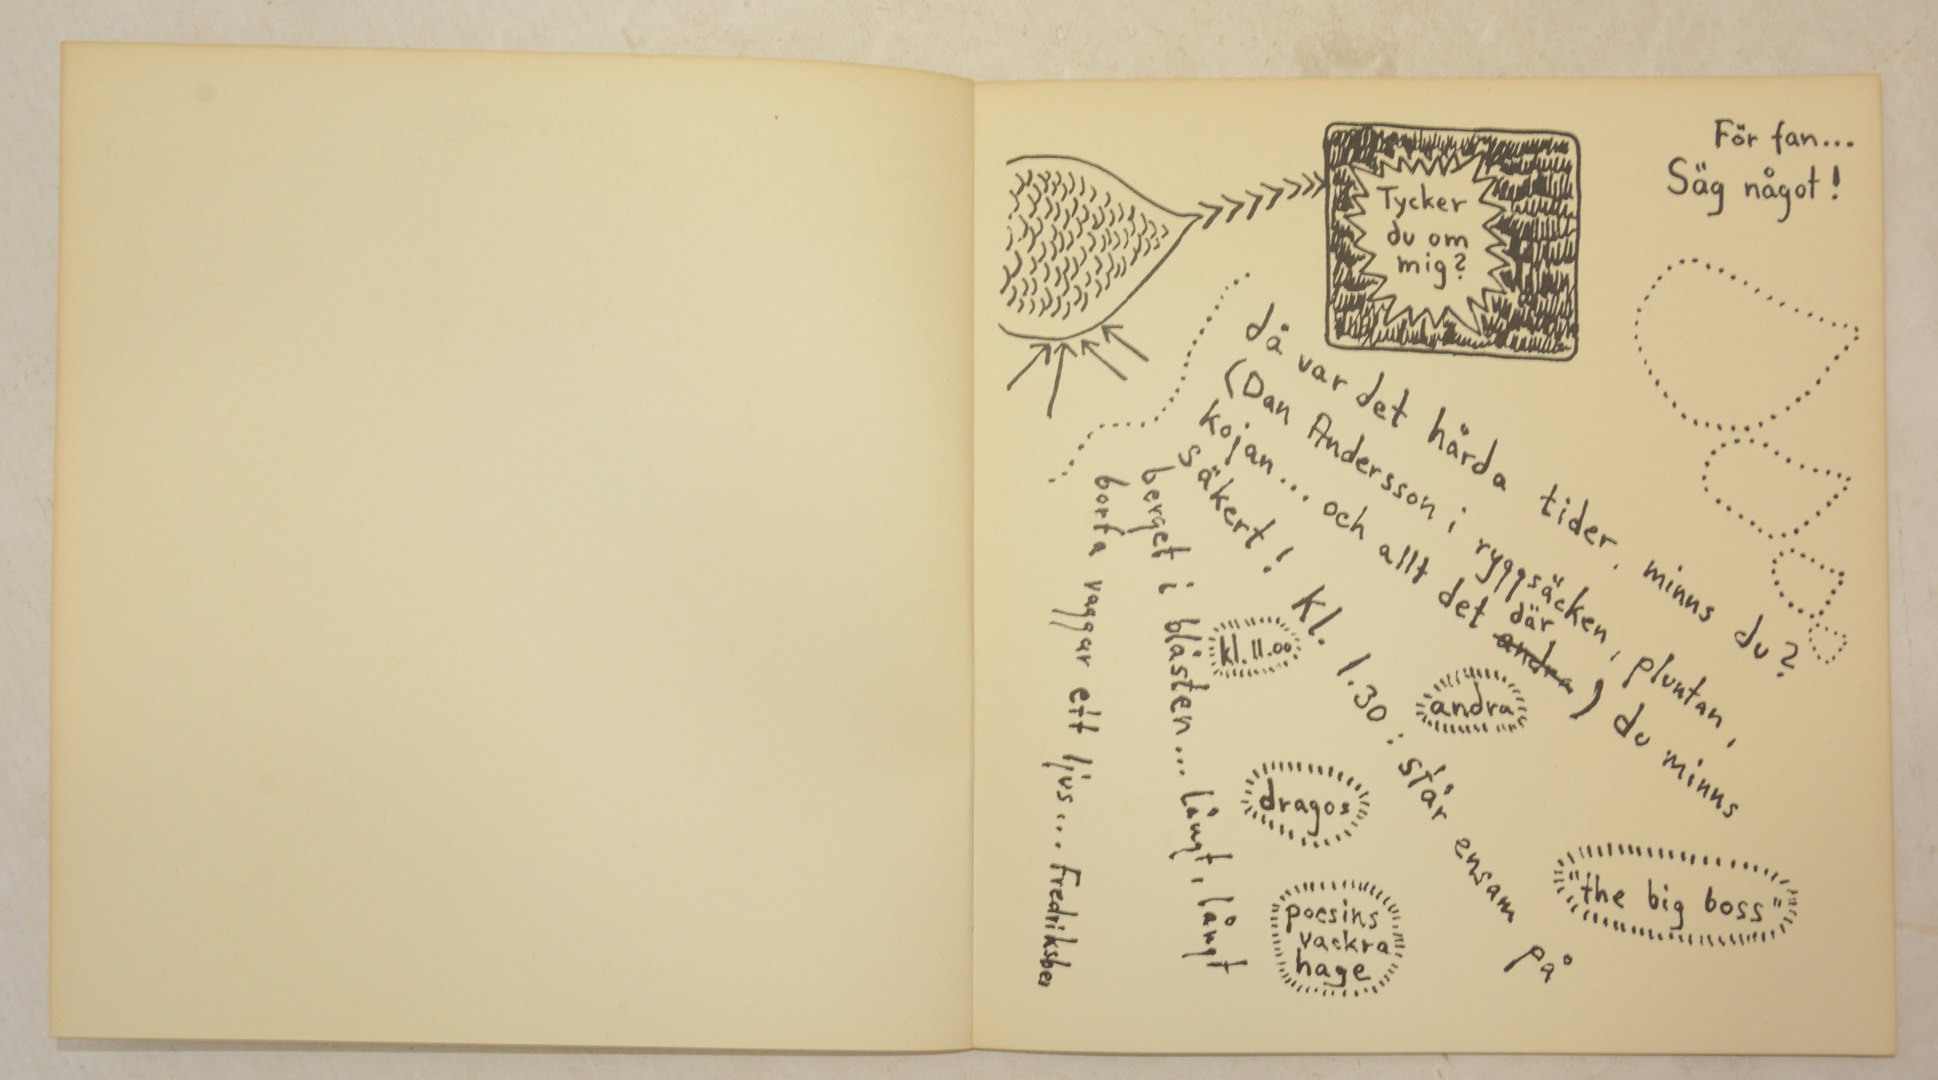 För fan...
Säg något!
Tycker
du om
mig?
då var det hårda tider, minns du?
(Dan Andersson i ryggsäcken, pluntan,
kojan... och allt det där andra) du minns
säkert! kl. 1.30 : står ensam på
berget i blåsten... långt, långt
borta vaggar ett ljus... Fredriksber
kl. 11.00
andra
dragos
"the big boss"
poesins
vackra
hage